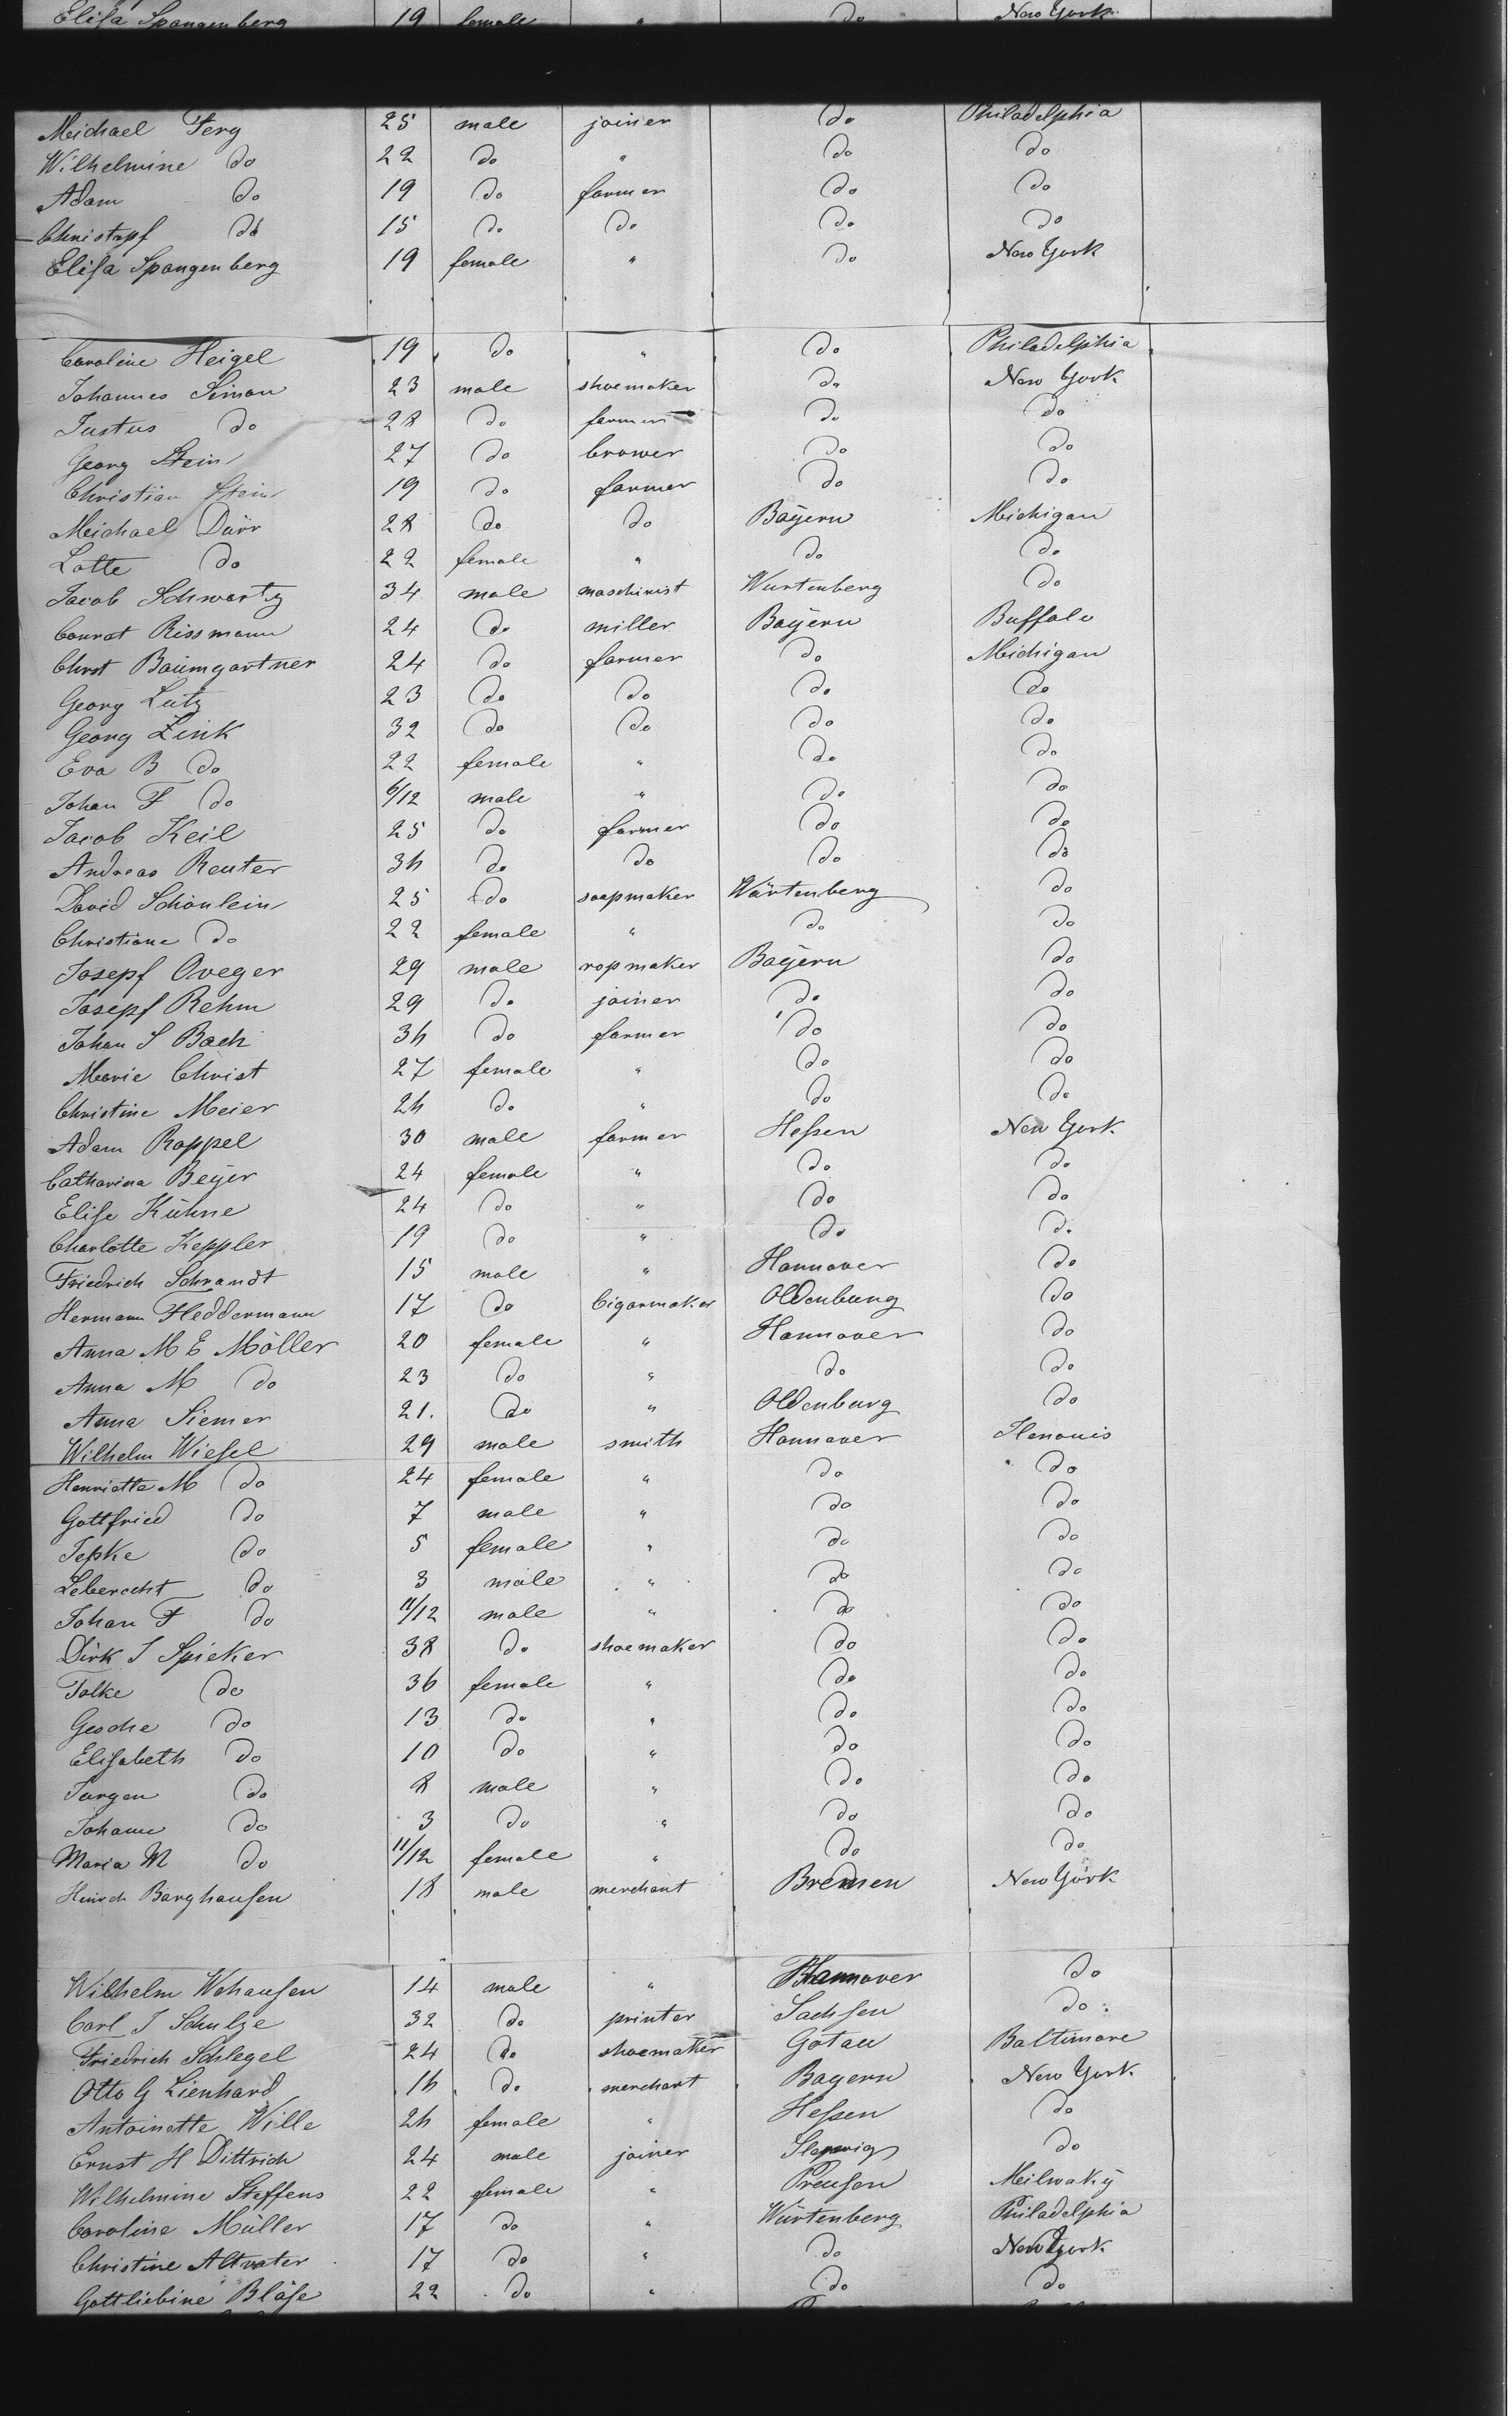 Elisa Spangenberg 19 female " do New York
Michael Ferg 25 male joiner do Philadelphia
Wilhelmine do 22 do " do do
Adam do 19 do farmer do do
Christopf do 15 do do do do
Elisa Spangenberg 19 female " do New York
Caroline Heigel 19 do " do Philadelphia
Johannes Simon 23 male shoemaker do New York
Justus do 28 do farmer do do
Georg Stein 27 do brower do do
Christian Stein 19 do farmer do do
Michael Dürr 28 do do Bayern Michigan
Lotte do 22 female " do do
Jacob Schwartz 34 male maschinist Wurtenberg do
Conrat Rissmann 24 do miller Bayern Buffalo
Chrst Baumgartner 24 do farmer do Michigan
Georg Lutz 23 do do do do
Georg Zink 32 do do do do
Eva B do 22 female " do do
Johan F do 6/12 male " do do
Jacob Keil 25 do farmer do do
Andreas Reuter 36 do do do do
David Schönlein 25 do soapmaker Würtenberg do
Christiane do 22 female " do do
Josepf Oveger 29 male ropmaker Bayern do
Josepf Rehm 29 do joiner do do
Johan S Bach 36 do farmer do do
Marie Christ 27 female " do do
Christine Meier 26 do " do do
Adam Roppel 30 male farmer Hessen New York
Catharina Beyer 24 female " do do
Elise Kühne 24 do " do do
Charlotte Keppler 19 do " do do
Friedrich Schrandt 15 male " Hannover do
Hermann Heddermann 17 do Cigarmaker Oldenburg do
Anna M E Möller 20 female " Hannover do
Anna M do 23 do " do do
Anna Siemer 21. do " Oldenburg do
Wilhelm Wiesel 29 male smith Hannover Ilenouis
Henriette M do 24 female " do do
Gottfried do 7 male " do do
Tepke do 5 female " do do
Leberecht do 3 male " do do
Johan F do 11/12 male " do do
Dirk J Spieker 38 do shoemaker do do
Talke do 36 female " do do
Gesche do 13 do " do do
Elisabeth do 10 do " do do
Jurgen do 8 male " do do
Johann do 3 do " do do
Maria M do 11/12 female " do do
Hinrch Barghausen 18 male merchant Bremen New York
Wilhelm Wohausen 14 male " Hannover do
Carl J Schulze 32 do printer Sachsen do
Friedrich Schlegel 24 do shoemaker Gotau Baltimore
Otto G Lienhard 16 do merchant Bayern New York
Antoinette Wille 26 female " Hessen do
Ernst H Dittrich 24 male joiner do
Wilhelmine Steffens 22 female " Preusen Meilwaky
Caroline Müller 17 do " Würtenberg Philadelphia
Christine Altvater 17 do " do New York
Gottliebine Bläse 22 do " do do